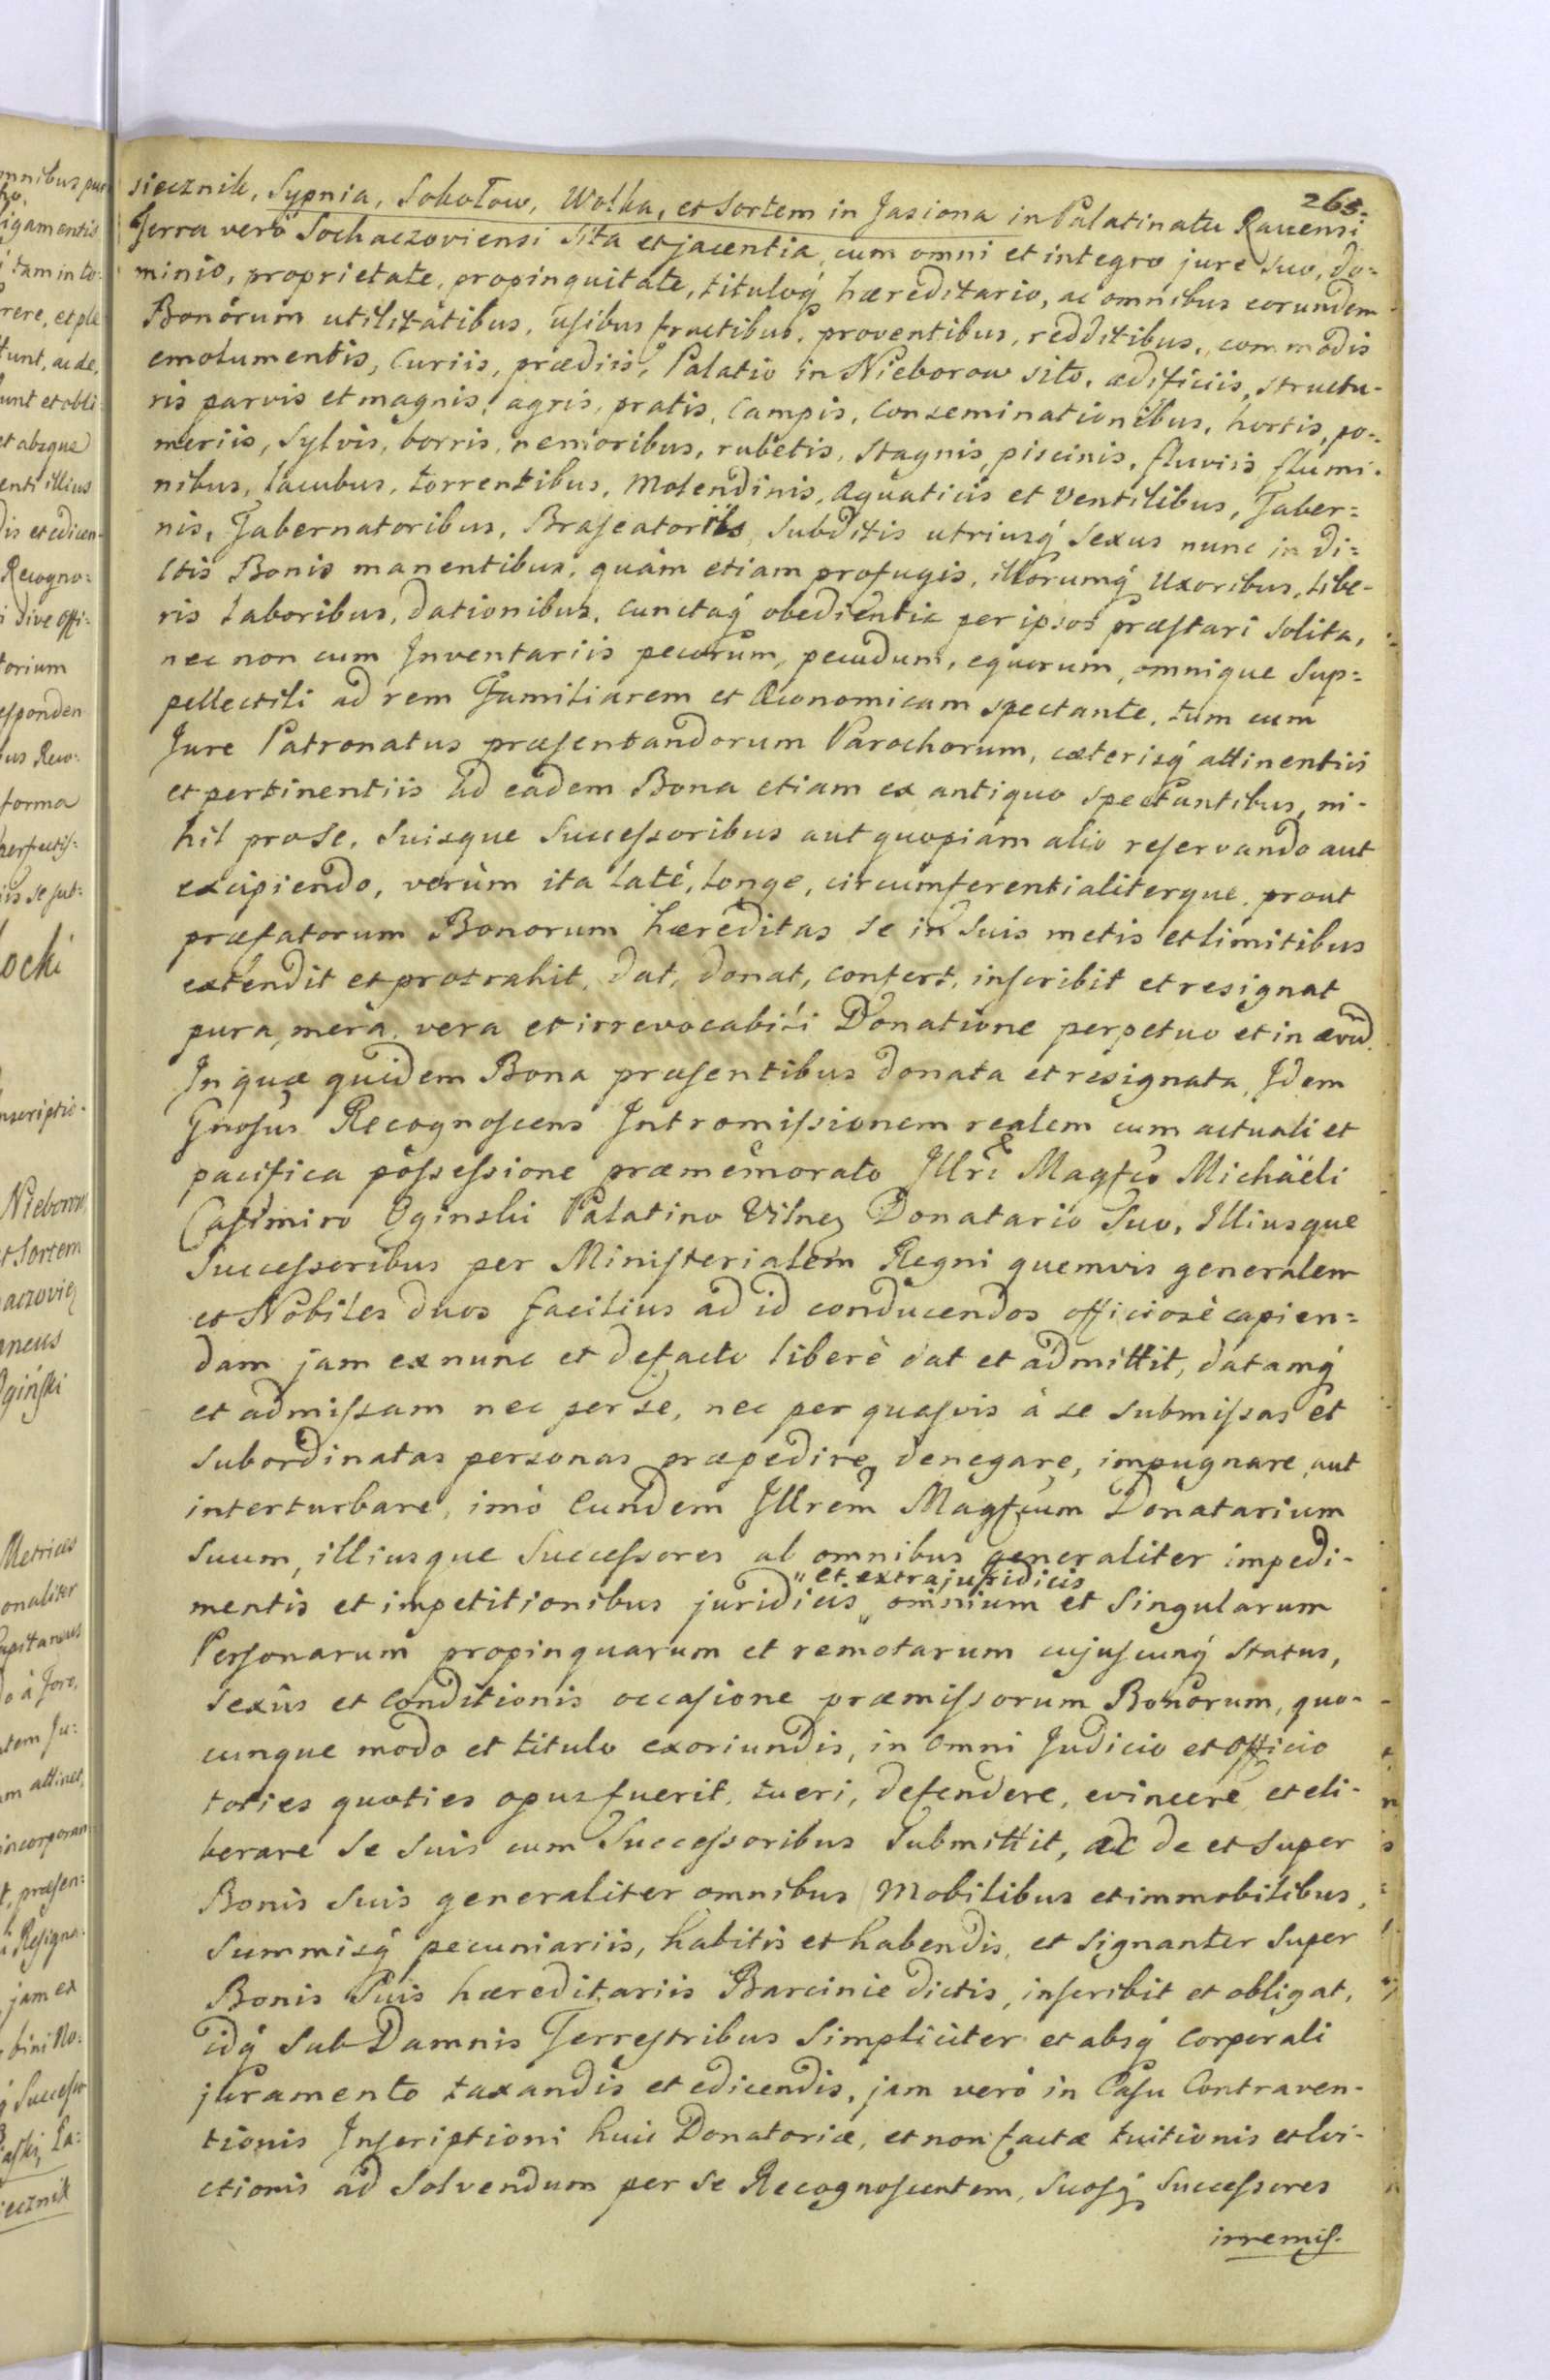 265.
siecznik, Sypnia, Sokołow, Wolka, et Sortem in Jasiona in Palatinatu Ravensi
Terra verò Sochaczoviensi sita et jacentia, cum omni et integro jure suo, do=
minio, proprietate, propinquitate, tituloq́ hæreditario, ac omnibus eorundem
Bonorum utilitatibus, usibus fructibus, proventibus, redditibus, commodis
emolumentis, Curiis, prædiis, Palatio in Nieborow sito, ædificiis, structu-
ris parvis et magnis, agris, pratis, Campis, Conseminationibus, hortis, po=
meriis, Sylvis, borris, nemoribus, rubetis, Stagnis, piscinis, fluviis flumi-
nibus, lacubus, torrentibus, Molendinis, Aquaticis et Ventilibus, Taber=
nis, Tabernatoribus, Braseatoriis, Subditis utriusq́ Sexus nunc in di=
ctis Bonis manentibus, quàm etiam profugis, illorumq́ Uxoribus, libe-
ris laboribus, dationibus, cunctaq́ obedientia per ipsos præstari solita,
nec non cum Inventariis pecorum, pecudum, equorum, omnique Sup=
pellectili ad rem Familiarem et Œconomicam spectante, tum cum
Jure Patronatus præsentandorum Parochorum, cæterisq́ attinentiis
et pertinentiis ad eadem Bona etiam ex antiquo spectantibus, ni-
hil pro se, Suisque Successoribus aut quopiam alio reservando aut
excipiendo, verùm ita latè, longe, circumferentialiterque, prout
præfatorum Bonorum hæreditas se in Suis metis et limitibus
extendit et protrahit, dat, donat, confert, inscribit et resignat
pura, mera, vera et irrevocabili Donatione perpetuo et in ævu͠.
In quæ quidem Bona præsentibus donata et resignata, Idem
Gnosus Recognoscens Intromissionem realem cum actuali et
pacifica possessione præmemorato Illri Magfco Michäeli
Casimiro Oginski Palatino Vilneꝫ Donatario Suo, Illiusque
Successoribus per Ministerialem Regni quemvis generalem
et Nobiles duos facilius ad id conducendos officiosè capien=
dam jam ex nunc et defacto liberè dat et admittit, datamq́
et admissam nec per se, nec per quasvis à se submissas et
subordinatas personas præpedire, denegare, impugnare, aut
interturbare, imò Eundem Illrem Magfcum Donatarium
Suum, illiusque Successores ab omnibus generaliter impedi-
mentis et impetitionibus juridicis " et extrajuridicis " omnium et Singularum
Personarum propinquarum et remotarum cujuscunq́ Status,
Sexûs et Conditionis occasione præmissorum Bonorum, quo-
cunque modo et titulo exoriundis, in omni Judicio et Officio
toties quoties opus fuerit, tueri, defendere, evincere et eli-
berare se Suis cum Successoribus Submittit, ac de et Super
Bonis Suis generaliter omnibus Mobilibus et immobilibus,
Summisq́ pecuniariis, habitis et habendis, et Signanter Super
Bonis Suis hæreditariis Barcinie dictis, inscribit et obligat,
idq́ Sub Damnis Terrestribus Simpliciter et absq́ Corporali
juramento taxandis et edicendis, jam verò in Casu Contraven-
tionis Inscriptioni huic Donatoriæ, et non factæ tuitionis et Evi-
ctionis ad Solvendum per Se Recognoscentem, Suosq́ Successores
irremis-